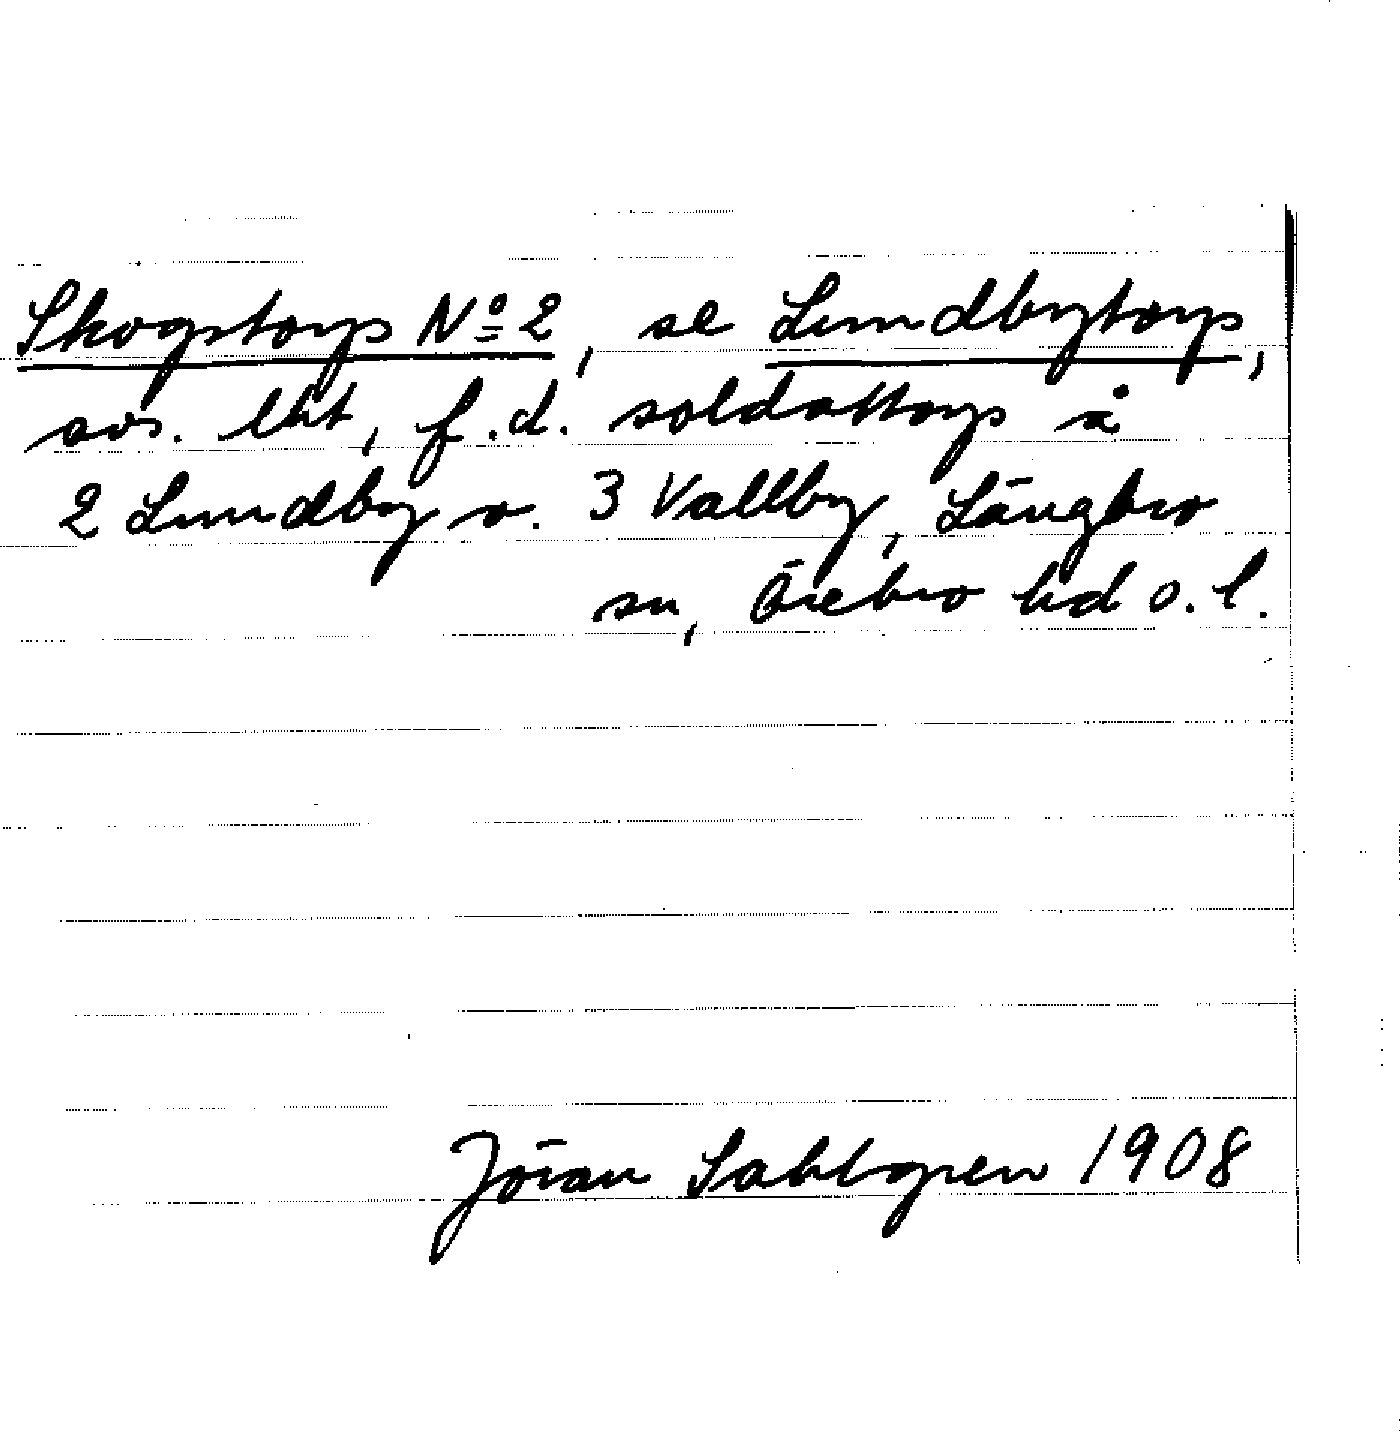 Skogstorp No 2, se Lundbytorp,
avs. lht, f.d. soldattorp å
2 Lundby o. 3 Vallby, Längbro
sn, Örebro hd o. l.
Jöran Sahlgren 1908